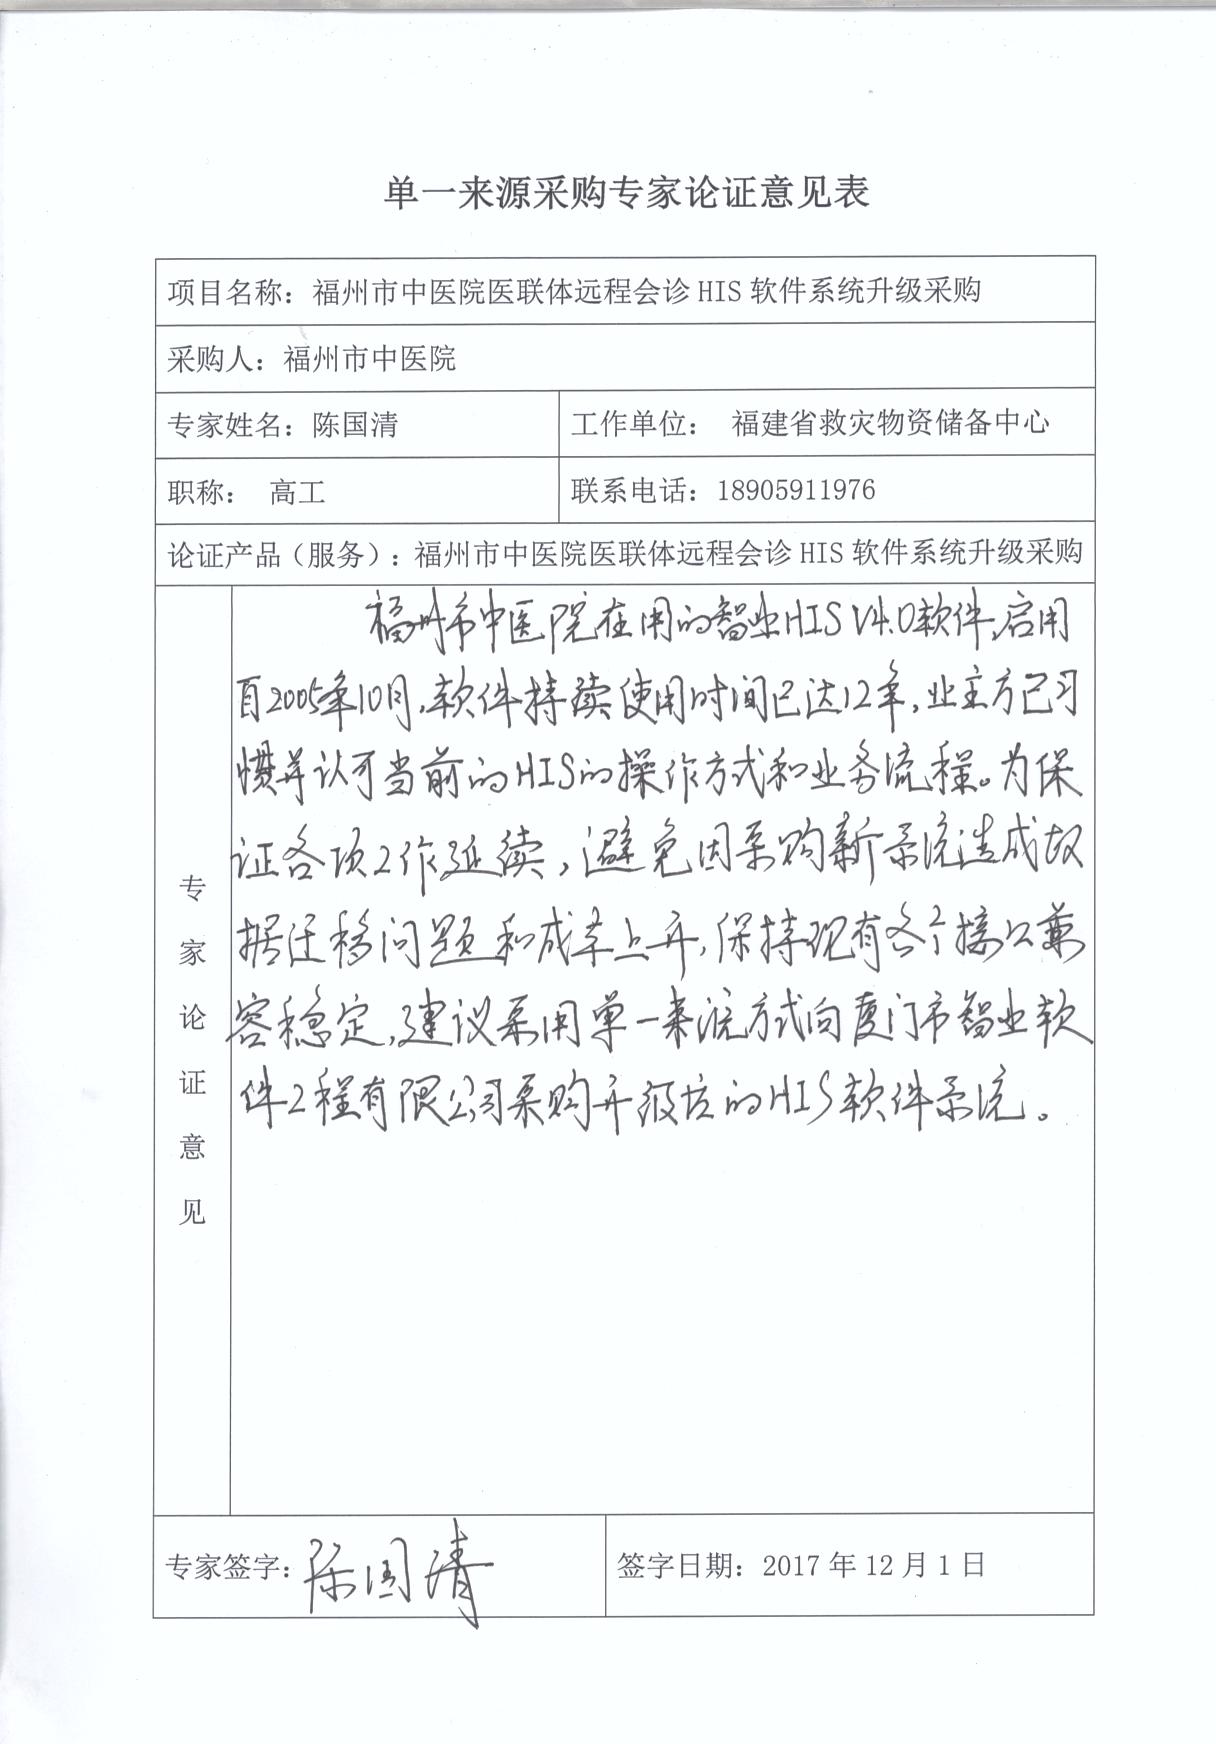 单一来源采购专家论证意见表
项目名称：福州市中医院医联体远程会诊 HIS 软件系统升级采购
采购人：福州市中医院
专家姓名：陈国清
工作单位： 福建省救灾物资储备中心
职称： 高工
联系电话：18905911976
论证产品（服务）：福州市中医院医联体远程会诊 HIS 软件系统升级采购
专家论证意见
福州市中医院在用的智业HIS V4.0软件，启用
自2005年10月，软件持续使用时间已达12年，业主方已习
惯并认可当前的HIS的操作方式和业务流程。为保
证各项工作延续，避免因采购新系统造成数
据迁移问题和成本上升，保持现有各个接口兼
容稳定，建议采用单一来源方式向厦门市智业软
件工程有限公司采购升级后的HIS软件系统。
专家签字：陈国清
签字日期：2017 年 12 月 1 日